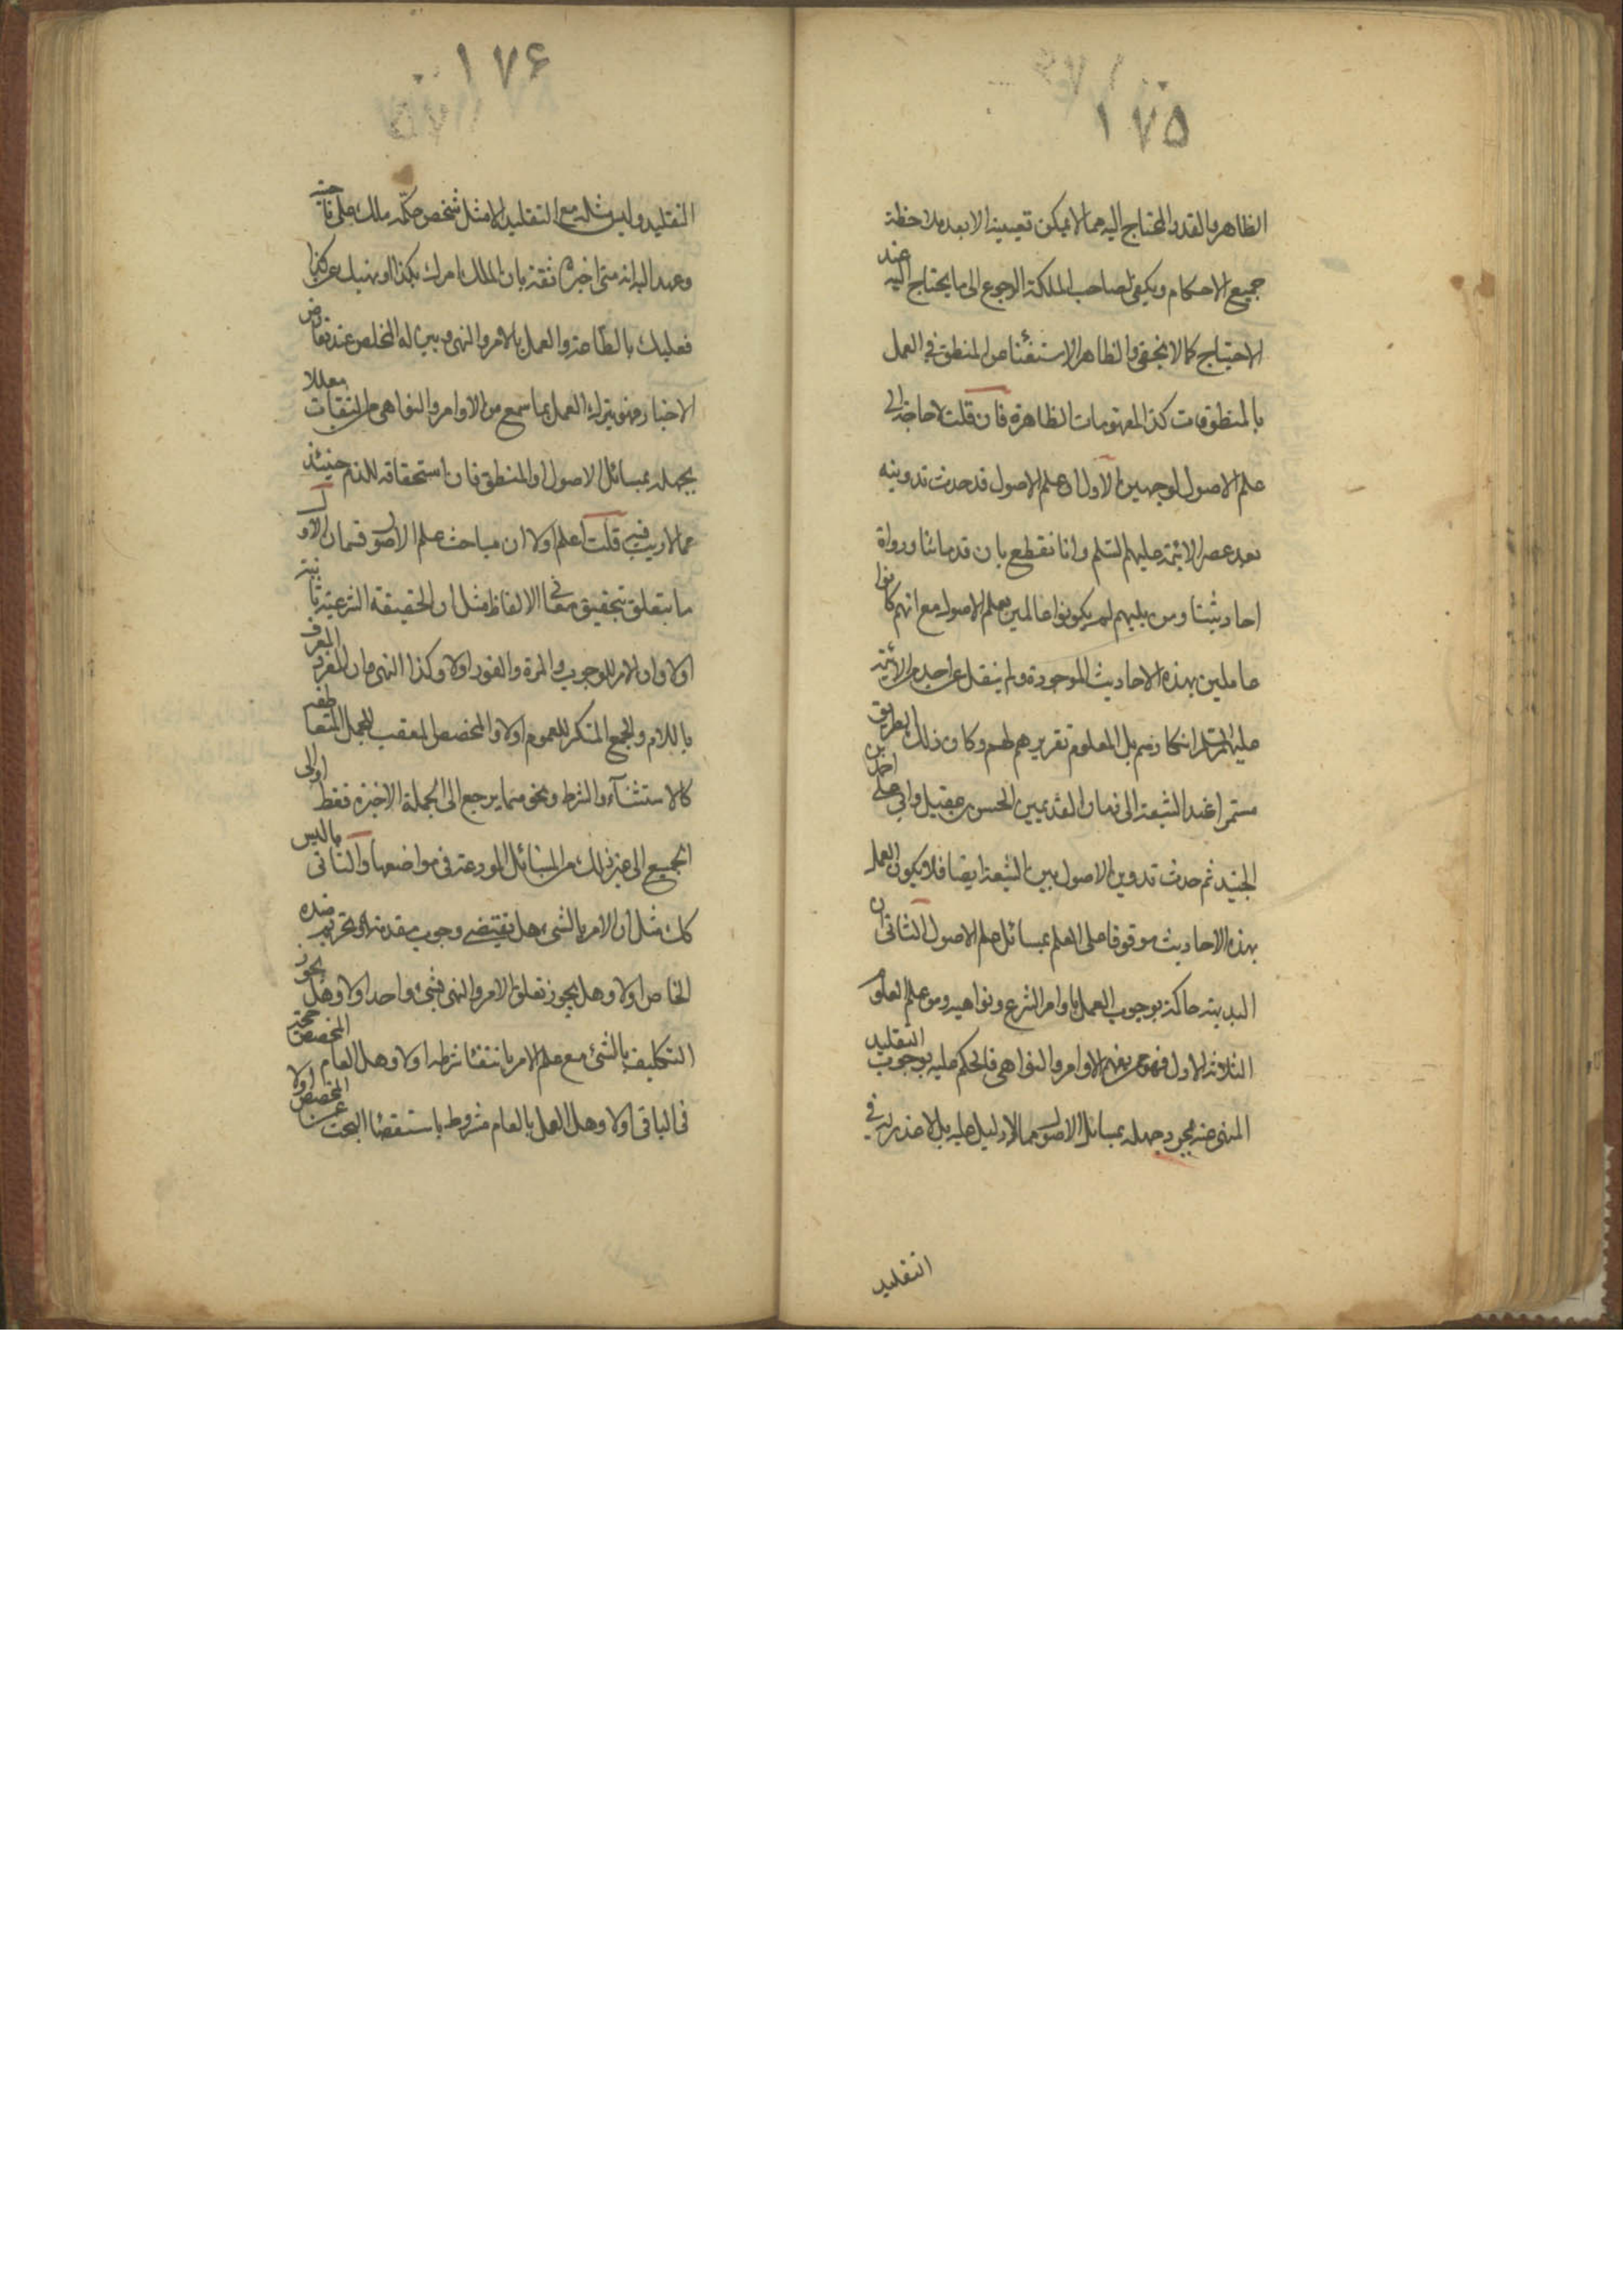 ١٧٥
الظاهر والقدر المحتاج اليه مما لا يمكن تعيينه الا بعد ملاحظة
جميع الاحكام ويكفي لصاحب الملكة الرجوع الى ما يحتاج اليه عند
الاحتياج كما لا يخفى والظاهر الاستغناء عن المنطق في العمل
بالمنطوقات كذا المفهومات الظاهرة فان قلت لا حاجة الى
علم الاصول لوجهين الاول ان علم الاصول قد حدث تدوينه
بعد عصر الائمة عليهم السلم وانا نقطع بان قدمائنا ورواة
احاديثنا ومن يليهم لم يكونوا عالمين بعلم الاصول مع انهم كانوا
عاملين بهذه الاحاديث الموجودة ولم ينقل عن احد من الائمة
عليهم السلم انكارهم بل المعلوم تقريرهم لهم وكان ذلك الطريق
مستمرا عند الشيعة الى زمان القديمين الحسن بن عقيل واحمد بن
الجنيد ثم حدث تدوين الاصول بين الشيعة ايضا فلا يكون العمل
بهذه الاحاديث موقوفا على العلم بمسائل علم الاصول الثانى ان
البديهة حاكمة بوجوب العمل باوامر الشرع ونواهيه ومن علم العلوم
الثلاثة الاول فهو ممن يفهم الاوامر والنواهى فالحكم عليه بوجوب التقليد
المنهى عنه بمجرد جهله بمسائل الاصول مما لا دليل عليه بل لا عذر له في
التقليد
١٧۶
التقليد وليس مثله مع التقليد الا مثل شخص حكّمه ملك على ناحية
وعهد اليه انه متى اخبره ثقة بان الملك امرك بكذا او نهيك عن كذا
فعليك بالطاعة والعمل بالامر والنهى وبين له المخلص عند تعارض
الاخبار فهو يترك العمل بما سمع من الاوامر والنواهى من الثقات معللا
بجهله بمسائل الاصول او المنطق فان استحقاقه للذم حينئذ
مما لا ريب فيه قلت اعلم اولا ان مباحث علم الاصول قسمان الاول
ما يتعلق بتحقيق معانى الالفاظ مثل ان الحقيقة الشرعية ثابتة
اولا وان الامر للوجوب والمرة والفور اولا وكذا النهى وان المفرد المعرف
باللام والجمع المنكر للعموم اولا والمخصص المعقب للجمل المتعاطفة
كالاستثناء والشرط ونحوهما يرجع الى الجملة الاخيرة فقط او الى
الجميع الى غير ذلك من المسائل المودعة فى مواضعها والثانى ما ليس
كك مثل ان الامر بالشىء هل يقتضى وجوب مقدمته او تحريم ضده
الخاص اولا وهل يجوز تعلق الامر والنهى بشىء واحد اولا وهل يجوز
التكليف بالشىء مع علم الامر بانتفاء شرطه اولا وهل العام المخصص حجة
فى الباقى اولا وهل العمل بالعام مشروط باستقصاء البحث عن المخصص اولا